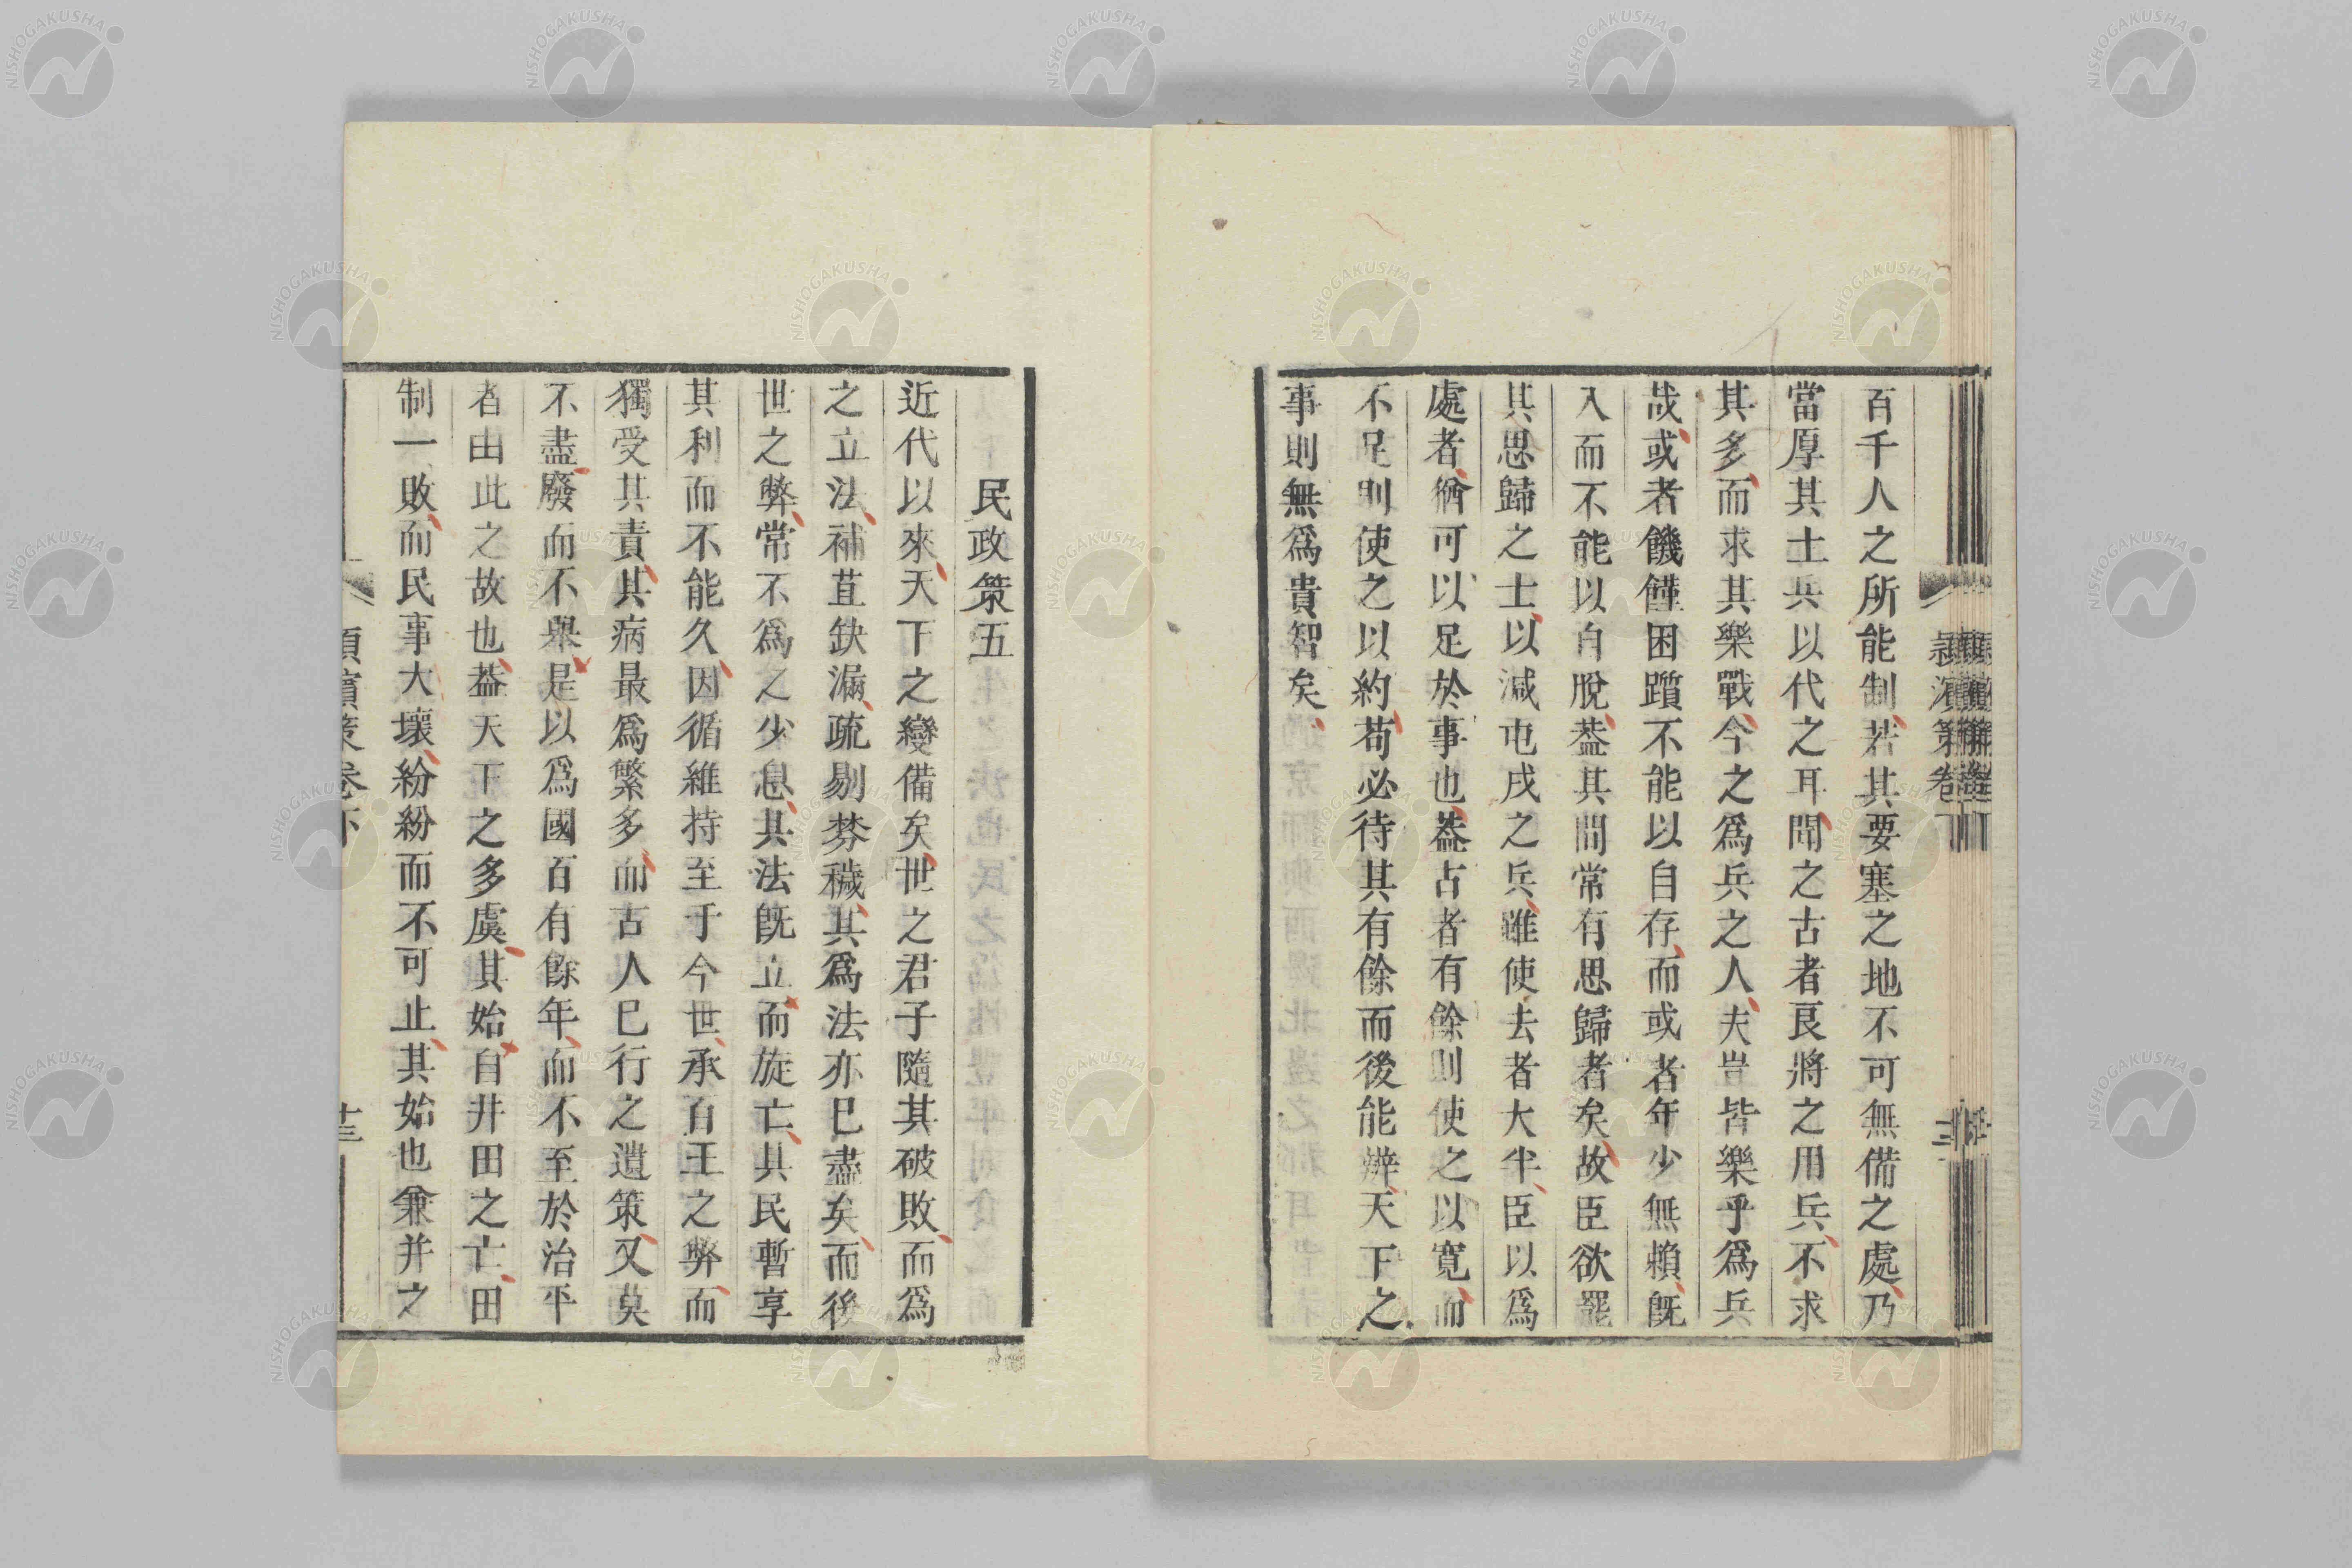 百千人之所能制若其要塞之地不可無備之處乃
當厚其土兵以代之耳聞之古者良將之用兵不求
其多而求其樂戰今之爲兵之人夫豈皆樂乎爲兵
哉或者饑饉困躓不能以自存而或者年少無賴既
入而不能以自脫葢其間常有思歸者矣故臣欲罷
其思歸之士以減屯戍之兵雖使去者大半臣以爲
處者猶可以足於事也葢古者有餘則使之以寬而
不足則使之以約苟必待其有餘而後能辨天下之
事則無爲貴智矣
民政策五
近代以來天下之變備矣世之君子隨其破敗而爲
之立法補苴缺漏疏剔棼穢其爲法亦已盡矣而後
世之弊常不爲之少息其法既立而旋亡其民暫享
其利而不能久因循維持至于今世承百王之弊而
獨受其責其病最爲繁多而古人已行之遺策又莫
不盡廢而不舉是以爲國百有餘年而不至於治平
者由此之故也葢天下之多虞其始自井田之亡田
制一敗而民事大壞紛紛而不可止其始也兼并之
潁濱策卷下
十三
NISHOGAKUSHA